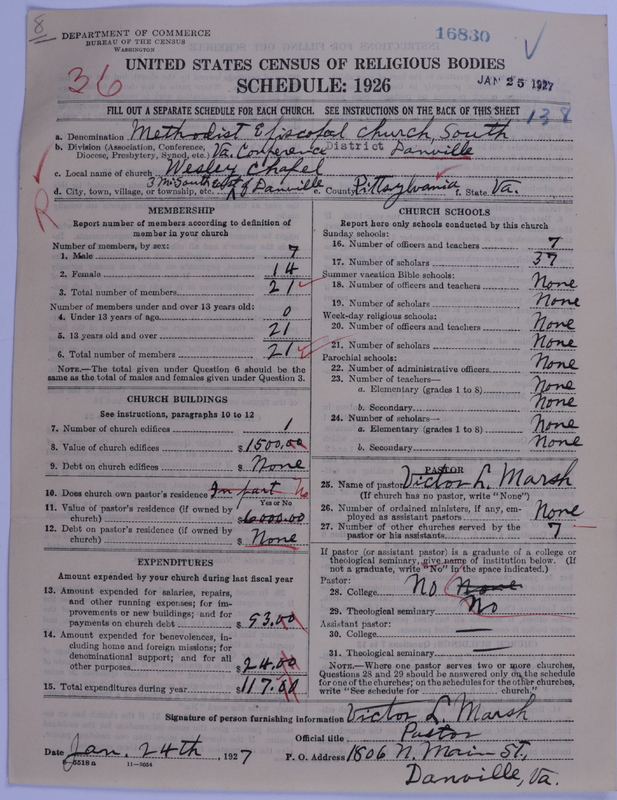 8
DEPARTMENT OF COMMERCE
BUREAU OF THE CENSUS
WASHINGTON
16830
UNITED STATES CENSUS OF RELIGIOUS BODIES
36
SCHEDULE: 1926
JAN 25 1927
FILL OUT A SEPARATE SCHEDULE FOR EACH CHURCH. SEE INSTRUCTIONS ON THE BACK OF THIS SHEET
138
a. Denomination Methodist Episcopal Church, South
b. Division (Association, Conference, Diocese, Presbytery, Synod, etc.) Va. Conference District Danville
c. Local name of church Wesley Chapel
d. City, town, village, or township, etc. 3 mi. South east of Danville e. County Pittsylvania f. State Va.
R
MEMBERSHIP
Report number of members according to definition of
member in your church
Number of members, by sex:
1. Male 7
2. Female 14
3. Total number of members 21
Number of members under and over 13 years old:
4. Under 13 years of age 0
5. 13 years old and over 21
6. Total number of members 21
NOTE.—The total given under Question 6 should be
same as the total of males and females given under Question 3.
CHURCH BUILDINGS
See instructions, paragraphs 10 to 12
7. Number of church edifices 1
8. Value of church edifices $1500.00
9. Debt on church edifices $ None
10. Does church own pastor's residence In part No
Yes or No
11. Value of pastor's residence (if owned by
church) $6000.00
12. Debt on pastor's residence (if owned by
church) $ None
EXPENDITURES
Amount expended by your church during last fiscal year
13. Amount expended for salaries, repairs,
and other running expenses; for im-
provements or new buildings; and for
payments on church debt $ 93.00
14. Amount expended for benevolences, in-
cluding home and foreign missions; for
denominational support; and for all
other purposes $ 24.00
15. Total expenditures during year $117.00
CHURCH SCHOOLS
Report here only schools conducted by this church
Sunday schools:
16. Number of officers and teachers 7
17. Number of scholars 37
Summer vacation Bible schools:
18. Number of officers and teachers None
19. Number of scholars None
Week-day religious schools:
20. Number of officers and teachers None
21. Number of scholars None
Parochial schools:
22. Number of administrative officers None
23. Number of teachers—
a. Elementary (grades 1 to 8) None
b. Secondary None
24. Number of scholars—
a. Elementary (grades 1 to 8) None
b. Secondary None
PASTOR
25. Name of pastor Victor L. Marsh
(If church has no pastor, write "None")
26. Number of ordained ministers, if any, em-
ployed as assistant pastors None
27. Number of other churches served by the
pastor or his assistants 7
If pastor (or assistant pastor) is a graduate of a college or
theological seminary, give name of institution below. (If
not a graduate, write "No" in the space indicated.)
Pastor:
28. College No None
29. Theological seminary No
Assistant pastor:
30. College —
31. Theological seminary —
NOTE.—Where one pastor serves two or more churches,
Questions 28 and 29 should be answered only on the schedule
for one of the churches; on the schedules for the other churches,
write "See schedule for church."
Signature of person furnishing information Victor L. Marsh
Official title Pastor
Date Jan. 24th, 1927 P. O. Address 1806 N. Main St.,
8—5518a 11—9054
Danville, Va.